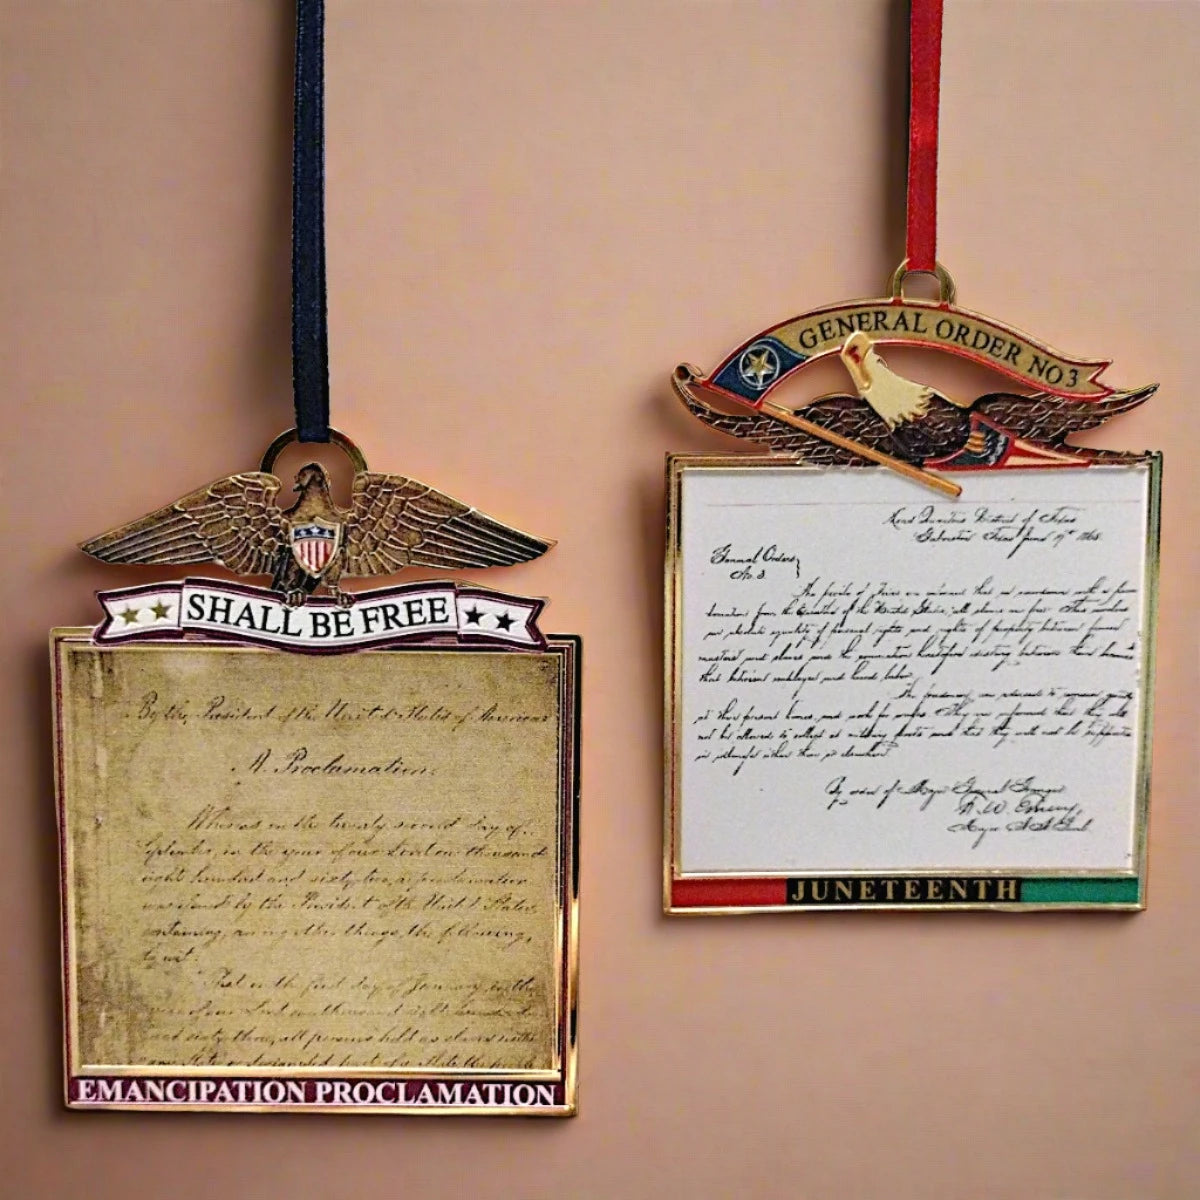 SHALL BE FREE
By the President of the United States of America
A Proclamation.
Whereas on the twenty second day of
September, in the year of our Lord one thousand
eight hundred and sixty two, a proclamation
was issued by the President of the United States,
containing, among other things, the following,
to wit:
That on the first day of January, in the
year of our Lord one thousand eight hundred
and sixty three, all persons held as slaves within
any State or designated part of a State the people
EMANCIPATION PROCLAMATION
GENERAL ORDER NO 3
Head Quarters District of Texas
Galveston Texas June 19th 1865.
General Orders
No. 3.
The people of Texas are informed that in accordance with a
from the Executive of the United States, all slaves are free. This involves
an absolute equality of personal rights and rights of property between former
masters and slaves and the connection heretofore existing between them becomes
that between employer and hired labor.
The freedmen are advised to remain quietly
at their present homes and work for wages. They are informed that they will
not be allowed to collect at military posts and that they will not be supported
in idleness either there or elsewhere
By order of Major General Granger
F. W. Emery
Major A. A. Genl
JUNETEENTH